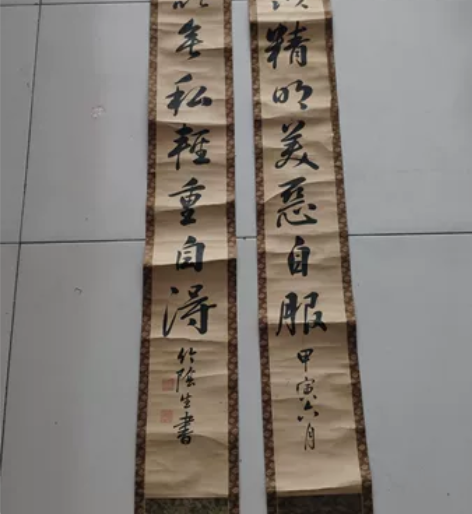 精明美惡自服
甲寅六月
無私輕重自得
竹陰生書